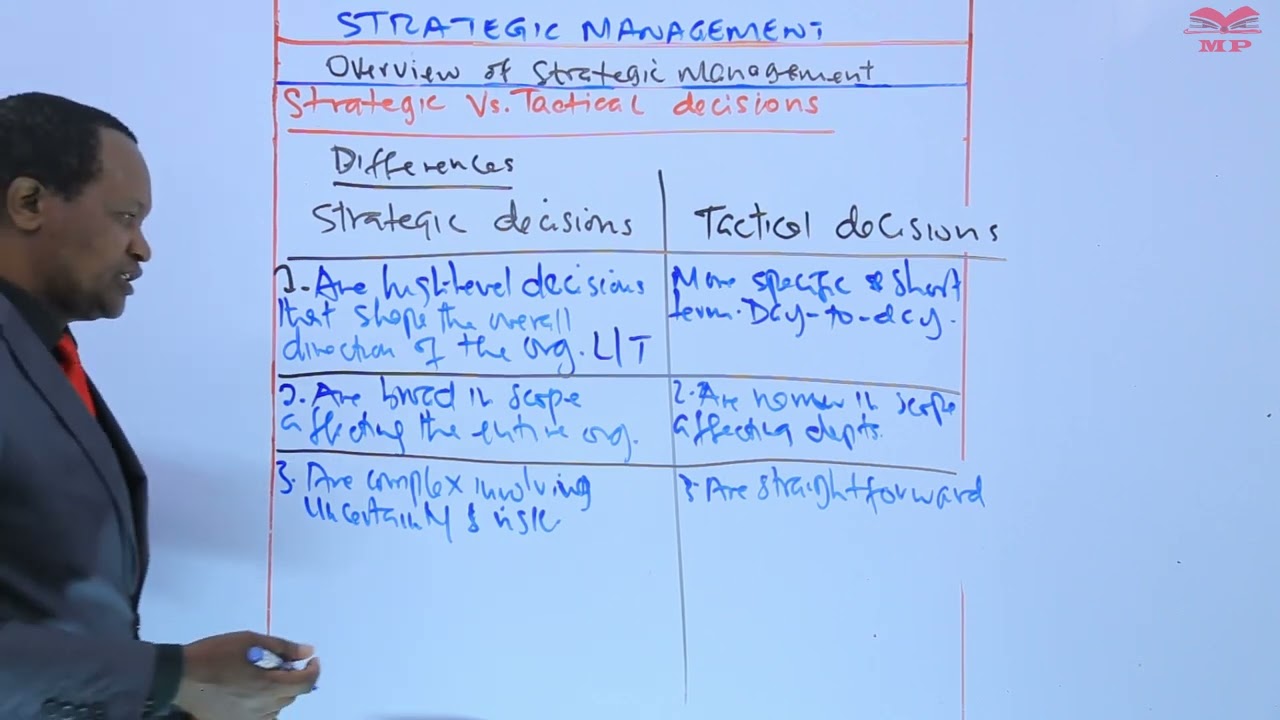 STRATEGIC MANAGEMENT
MP
Overview of Strategic Management
Strategic Vs. Tactical decisions
Differences
Strategic decisions
Tactical decisions
1. Are high-level decisions
that shape the overall
direction of the org. L/T
More specific & short
term. Day-to-day.
2. Are broad in scope
affecting the entire org.
2. Are narrow in scope
affecting depts.
3. Are complex involving
Uncertainty & risk
3. Are straightforward